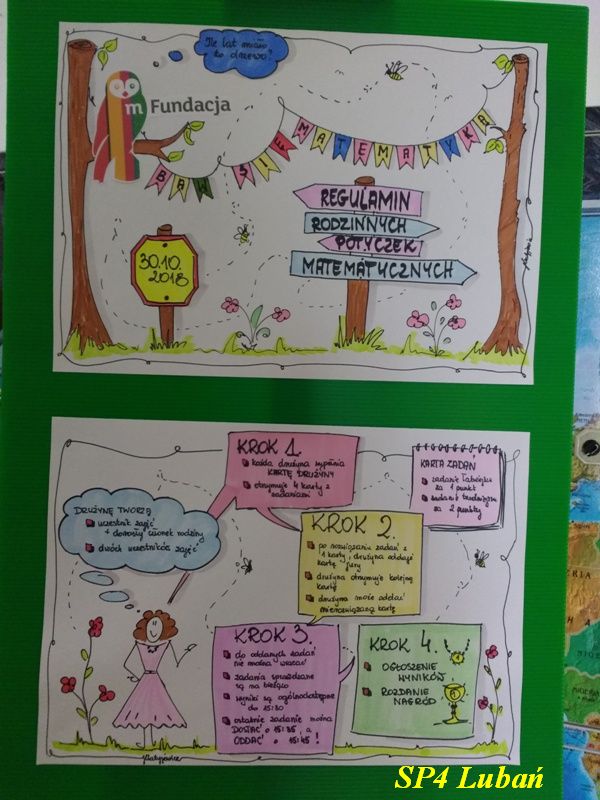 Ile lat miało
to drzewo?
m Fundacja
BAW SIĘ MATEMATYKĄ
REGULAMIN
RODZINNYCH
POTYCZEK
MATEMATYCZNYCH
30.10.
2018
KROK 1.
każda drużyna wypełnia
KARTĘ DRUŻYNY
otrzymuje 4 karty z
zadaniami
KARTA ZADAŃ
zadanie łatwiejsze
za 1 punkt
zadanie trudniejsze
za 2 punkty
DRUŻYNĘ TWORZĄ
uczestnik zajęć
+ dorosły członek rodziny
dwóch uczestników zajęć
KROK 2.
po rozwiązaniu zadań z
1 karty, drużyna oddaje
kartę jury
drużyna otrzymuje kolejną
kartę
drużyna może oddać
nierozwiązaną kartę
KROK 3.
do oddanych zadań
nie można wracać
zadania sprawdzane
są na bieżąco
wyniki są ogólnodostępne
do 15:30
ostatnie zadanie można
DOSTAĆ o 15:35, a
ODDAĆ o 15:45!
KROK 4.
OGŁOSZENIE
WYNIKÓW
ROZDANIE
NAGRÓD
SP4 Lubań